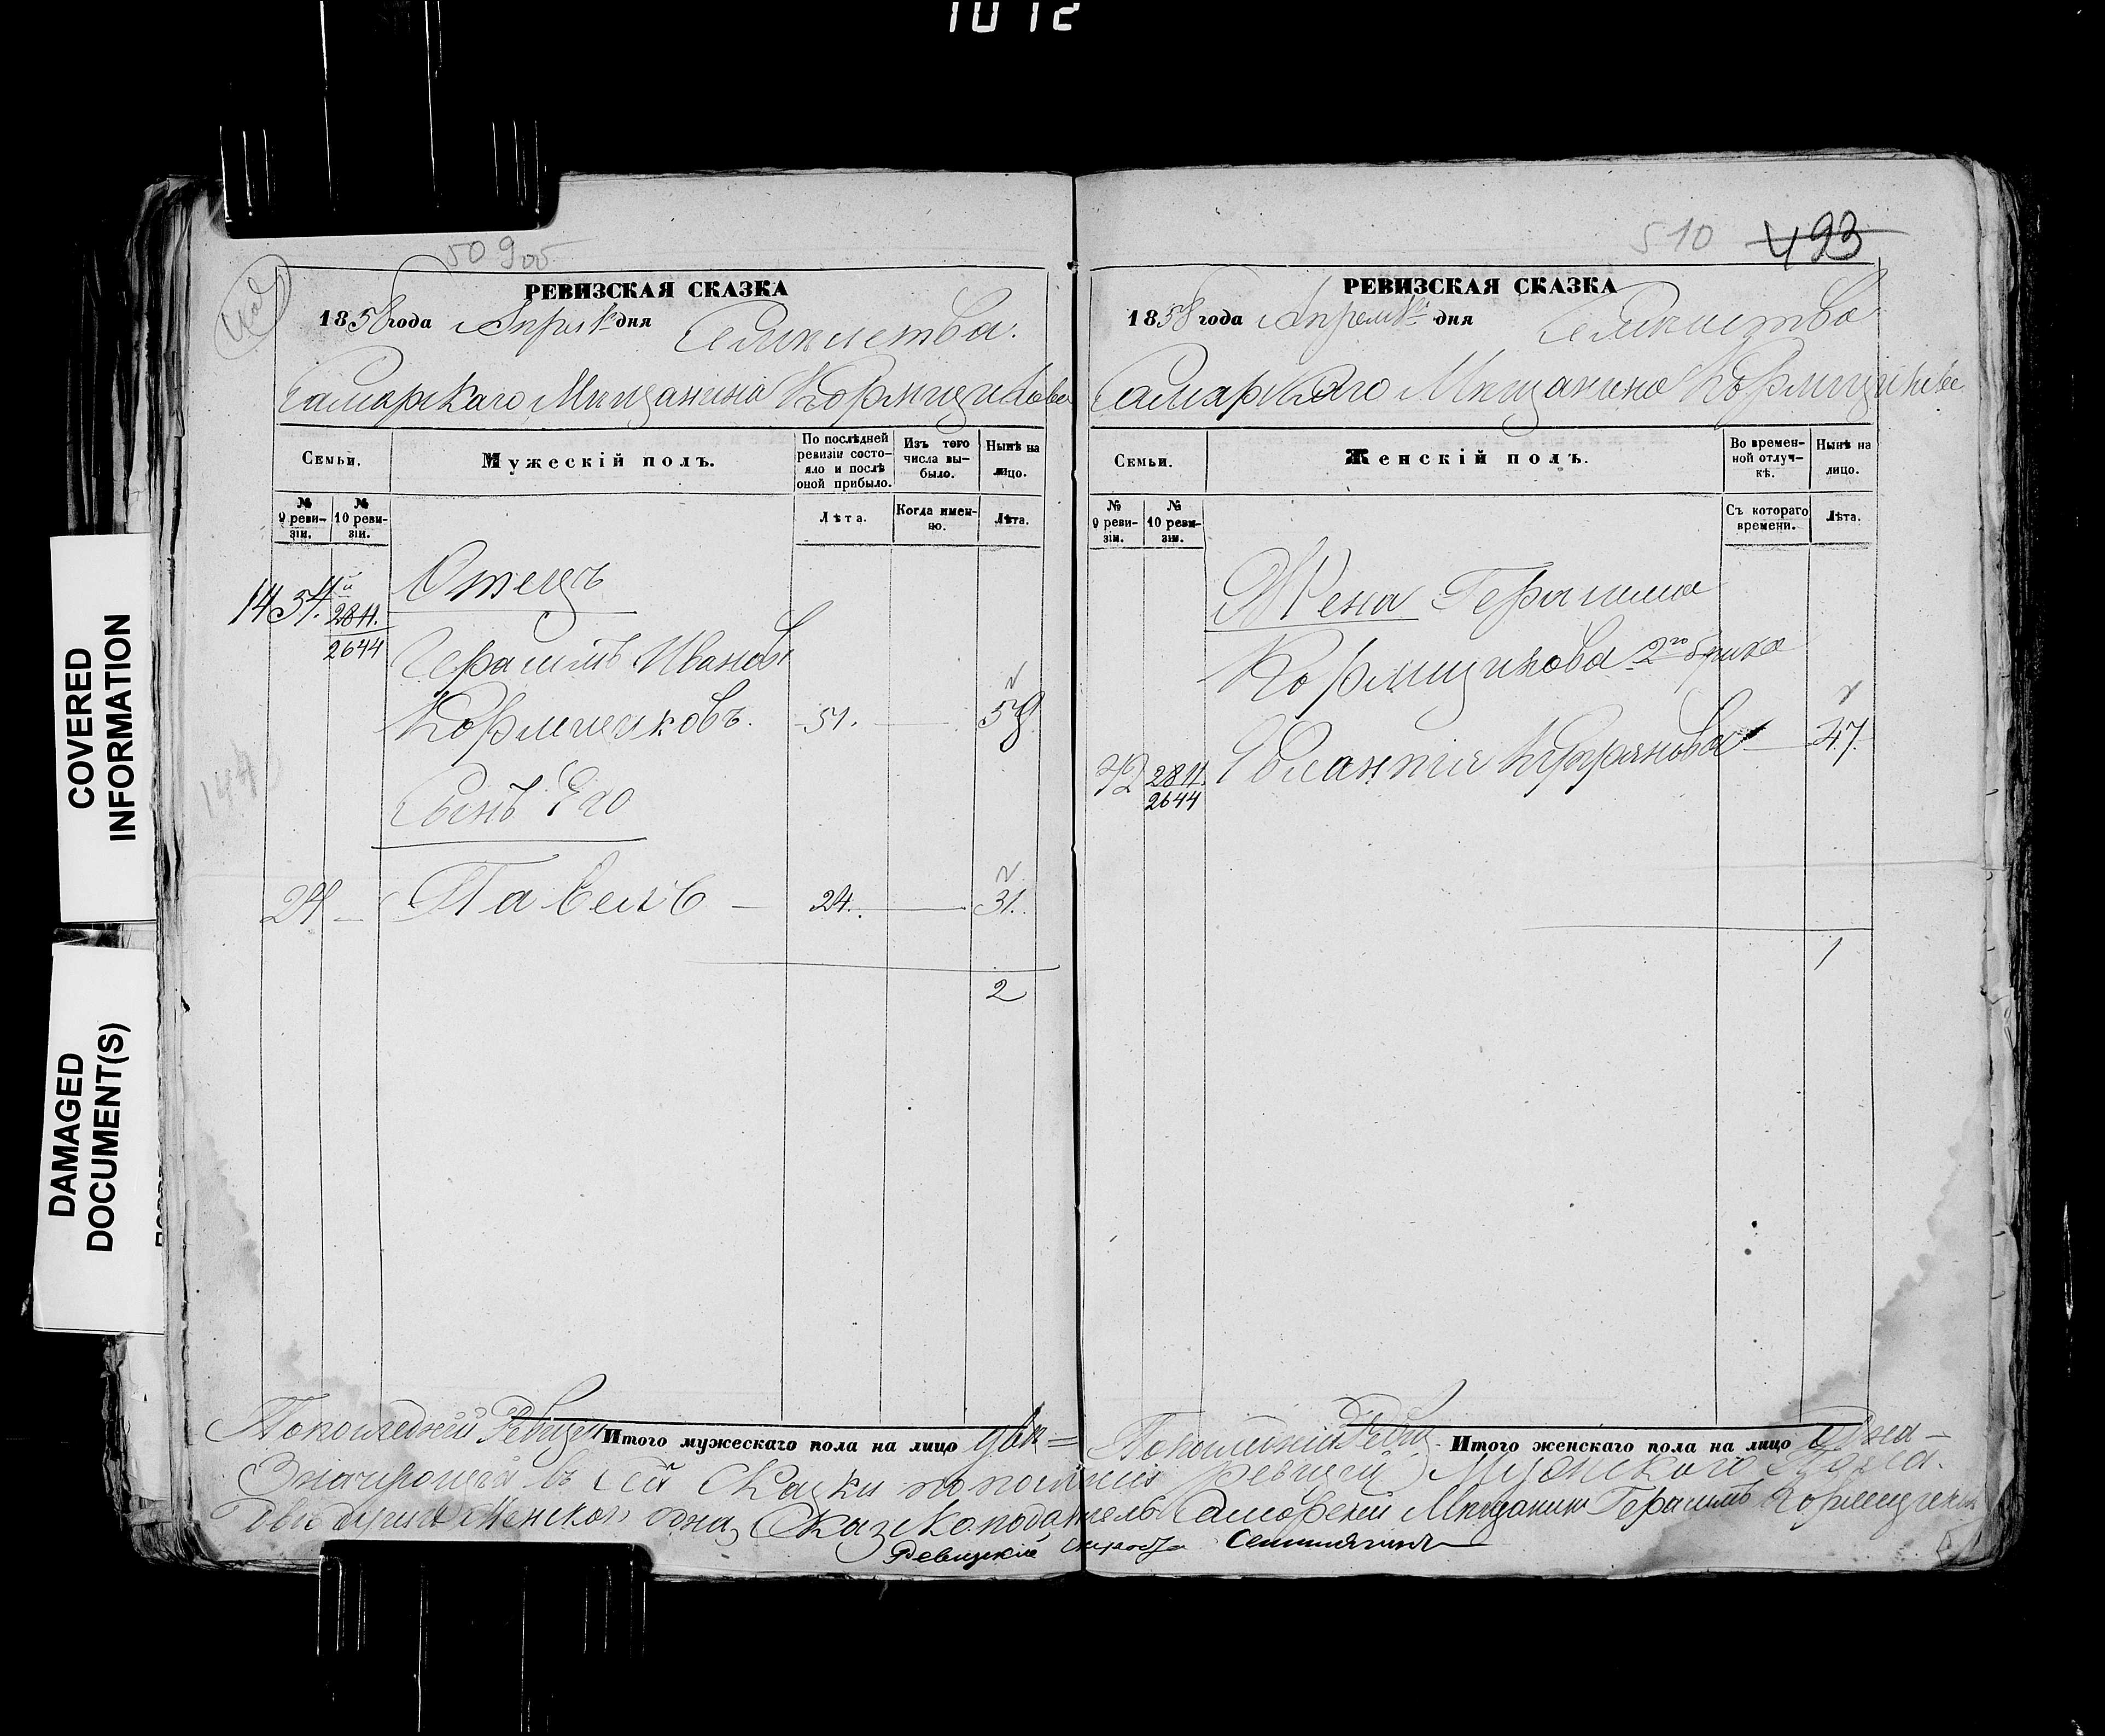 1012
COVERED
INFORMATION
DAMAGED
DOCUMENT(S)
50 905
РЕВИЗСКАЯ СКАЗКА
1858 года Апреля дня Семейства
Самарскаго Мещанина Кормщикова
Семьи.
Мужескій полъ.
По послѣдней ревизіи состояло и послѣ оной прибыло.
Изъ того числа выбыло.
Нынѣ на лицо.
№ 9 ревизіи.
№ 10 ревизіи.
Лѣта.
Когда именно.
Лѣта.
1454.
2811.
2644
Отецъ
Герасимъ Ивановъ
Кормщиковъ. 51. 58
Сынъ Его
24 Павелъ 24. 31.
2
По последней Ревизіи Итого мужескаго пола на лицо два
510 493
РЕВИЗСКАЯ СКАЗКА
1858 года Апреля дня Семейства
Самарскаго Мещанина Кормщикова
Семьи.
Женскій полъ.
Во временной отлучкѣ.
Нынѣ на лицо.
№ 9 ревизіи.
№ 10 ревизіи.
Съ котораго времени.
Лѣта.
Жена Герасима
Кормщикова 2го брака
2811.
2644
47.
1
Итого женскаго пола на лицо одна
Значущей въ сей Сказки по последней ревизіи Мужскаго пола
две души Женскаго одна, Сказкоподатель Самарскій Мещанинъ Герасимъ Кормщиковъ
Ревизскій